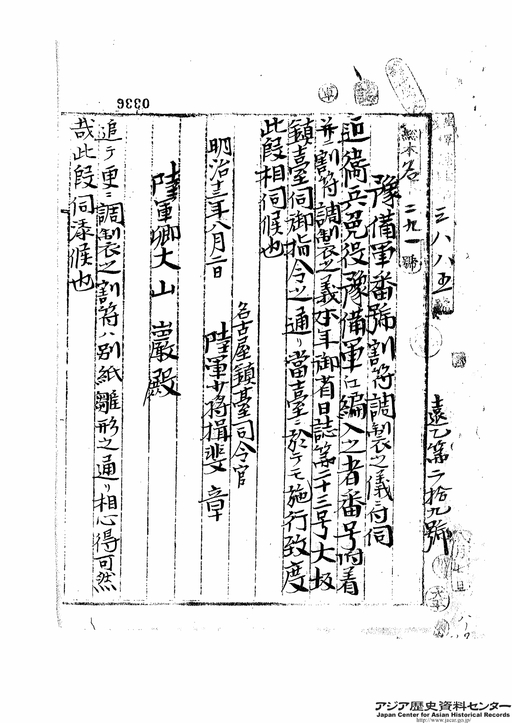 0336
三八八五
総木名二九一號
遠乙第二拾九號
豫備軍番號割符調製之儀ニ付伺
近衞兵免役豫備軍ニ編入之者番号附着
并ニ割符調製之義本年御省日誌第二十三号大坂
鎮臺伺御指令之通リ當臺ニ於テモ施行致度
此段相伺候也
名古屋鎮臺司令官
明治十三年八月二日 陸軍少将揖斐章
陸軍卿大山巖殿
追テ更ニ調製之割符ハ別紙雛形之通リ相心得可然
哉此段伺添候也
アジア歴史資料センター
Japan Center for Asian Historical Records
http://www.jacar.go.jp/